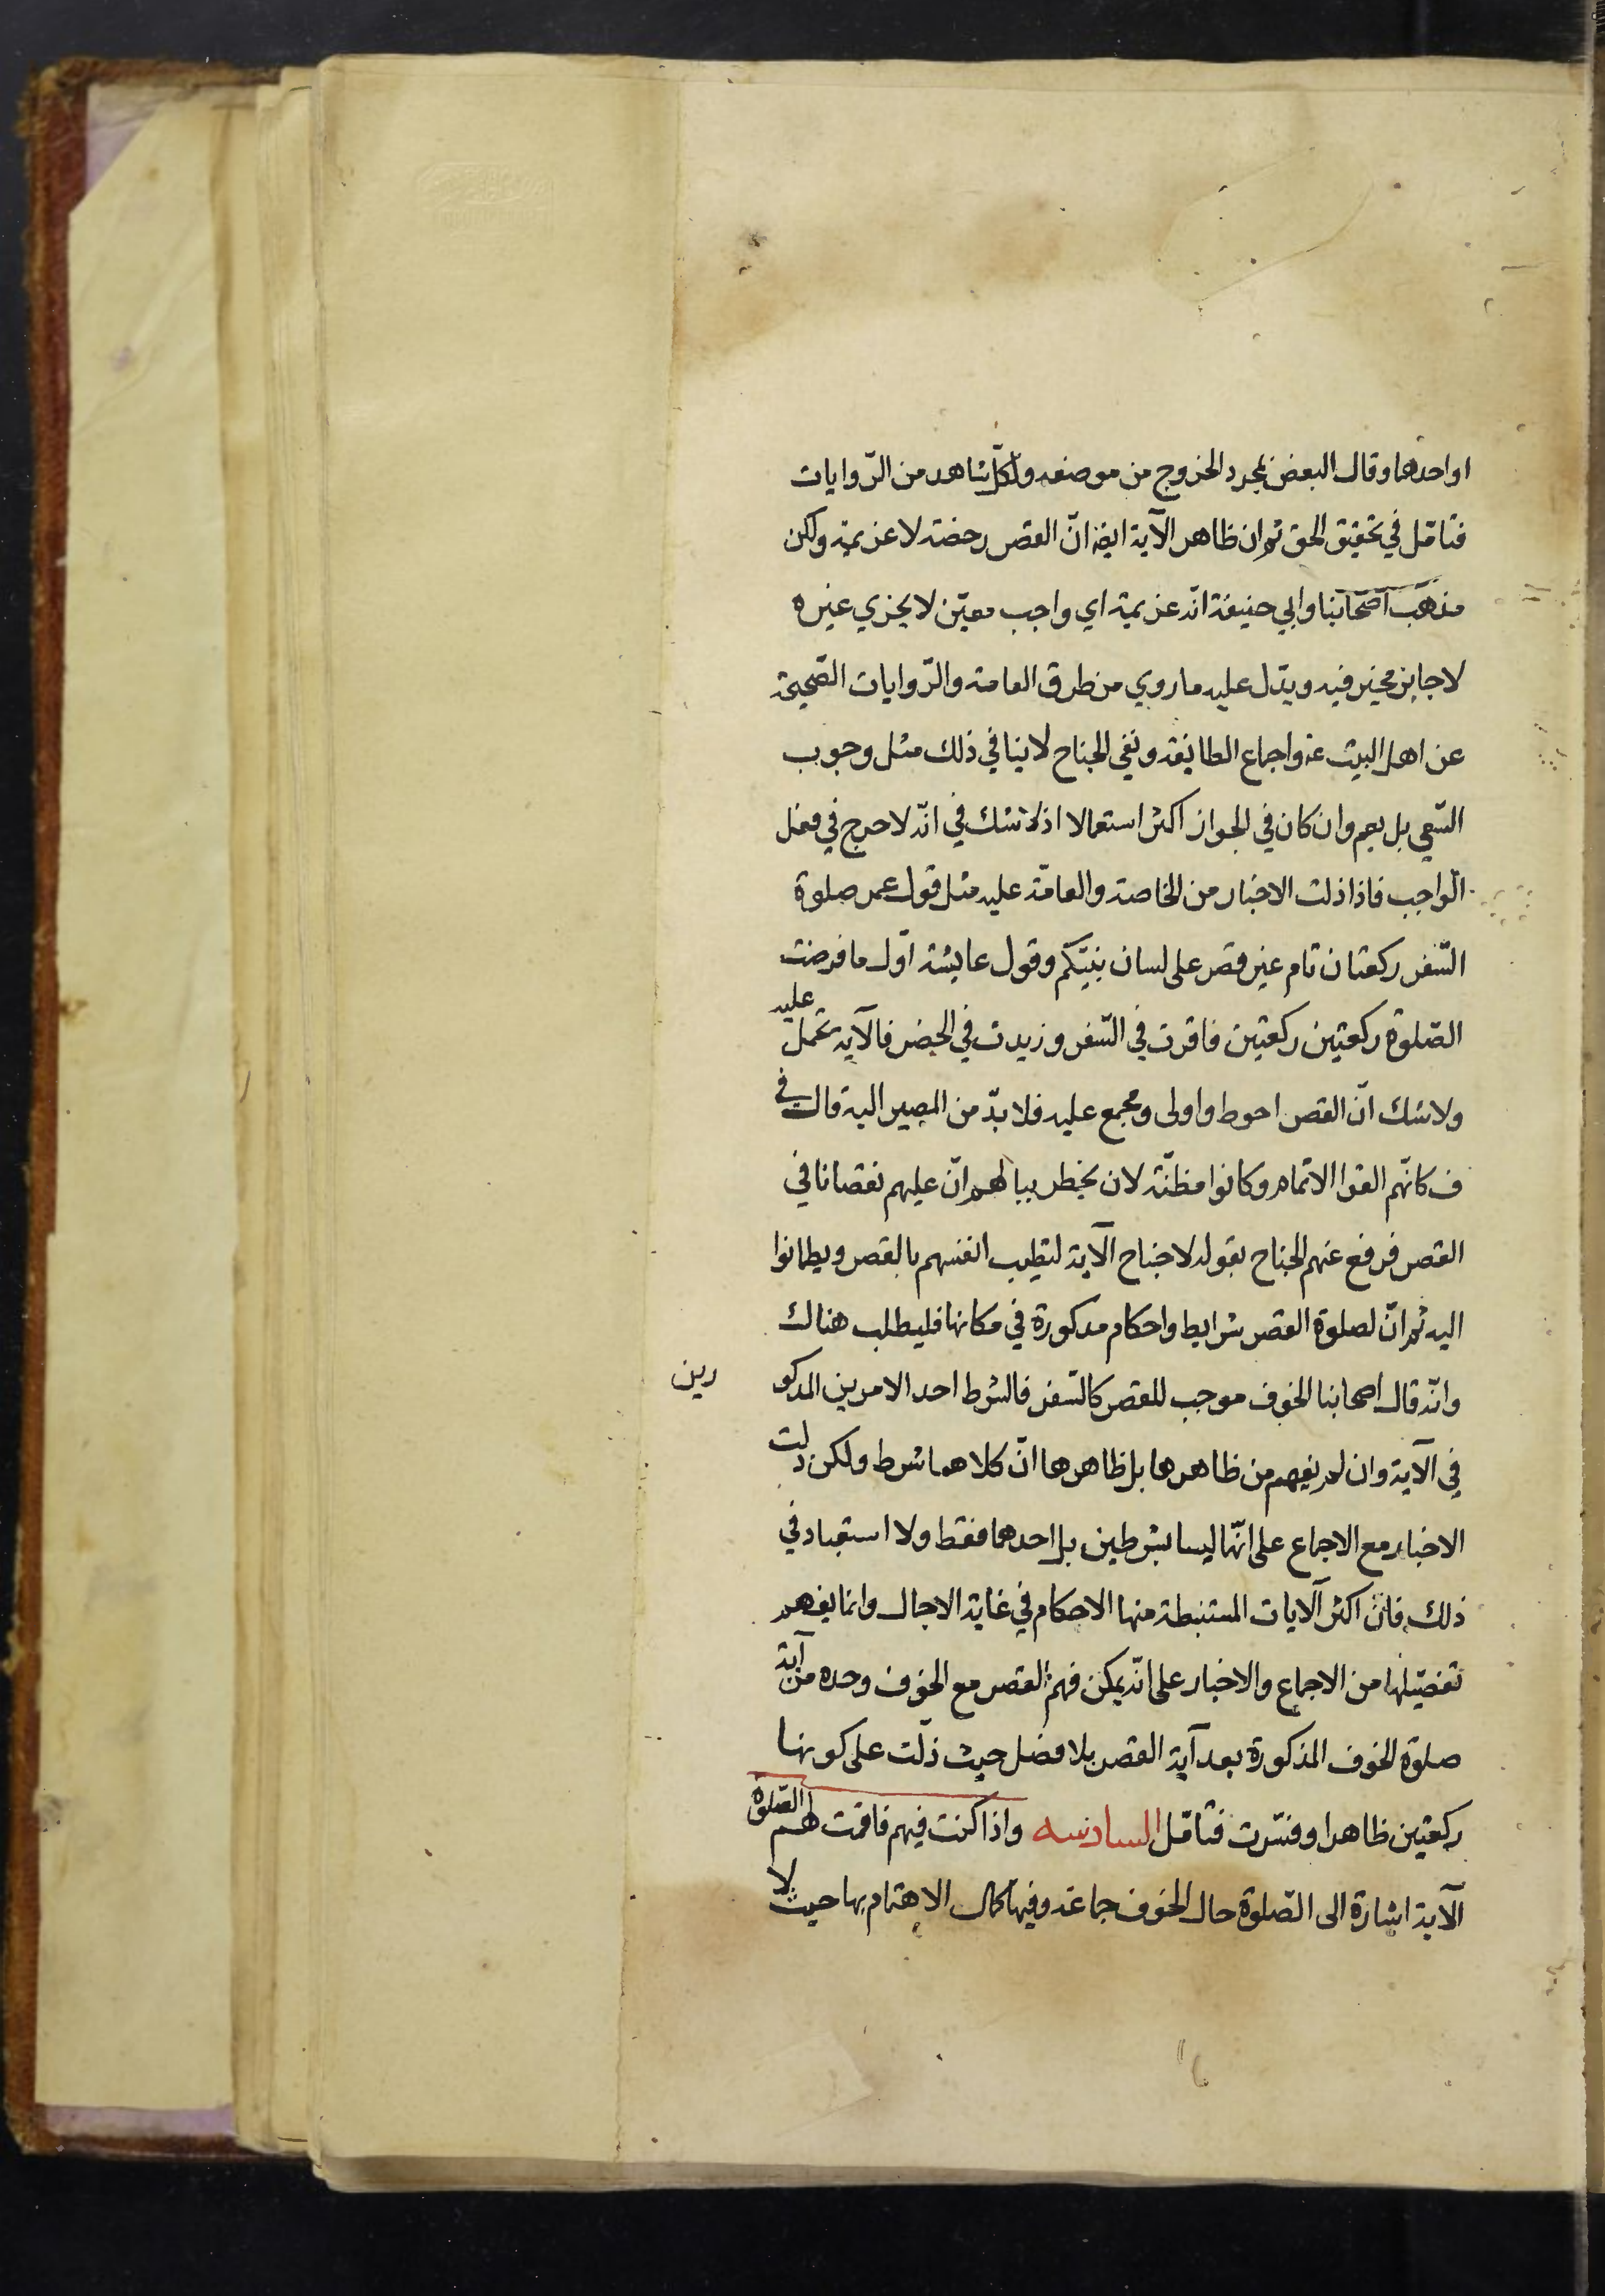 او احدهما وقال البعض بمجرد الخروج من موضعه ولكلّ شاهد من الرّوايات
فتامّل في تحقيق الحق ثم ان ظاهر الآية ايضا انّ القصر رخصة لا عزيمة ولكن
مذهب اصحابنا وابي حنيفة انّه عزيمة اي واجب معيّن لا يجزي غيره
لا جايز مخير فيه ويدّل عليه ما روي من طرق العامة والرّوايات الصّحيحة
عن اهل البيت عم واجماع الطايفة ونفي الجناح لا ينافي ذلك مثل وجوب
السّعي بل يعم وان كان في الجواز اكثر استعمالا اذ لا شك في انّه لا حرج في فعل
الواجب فاذا دلت الاخبار من الخاصة والعامّة عليه مثل قول عمر صلوة
السّفر ركعتان تام غير قصر على لسان نبيّكم وقول عايشة اوّل ما فرضت
الصّلوة ركعتين ركعتين فاقرت في السّفر وزيدت في الحضر فالآية تحمل عليه
ولا شك انّ القصر احوط واولى ومجمع عليه فلا بدّ من المصير اليه قال في
ف كانّهم الفوا الاتمام وكانوا مظنّة لان يخطر ببالهم انّ عليهم نقصانا في
القصر فرفع عنهم الجناح بقوله لا جناح الآية لتطيب انفسهم بالقصر ويطمانوا
اليه ثم انّ لصلوة القصر شرايط واحكام مذكورة في مكانها فليطلب هناك
وانّه قال اصحابنا الخوف موجب للقصر كالسّفر فالشرط احد الامرين المذكو رين
في الآية وان لم يفهم من ظاهرها بل ظاهرها انّ كلاهما شرط ولكن دلت
الاخبار مع الاجماع على انّهما ليسا بشرطين بل احدهما فقط ولا استبعاد في
ذلك فانّ اكثر الآيات المستنبطة منها الاحكام في غاية الاجمال وانما يفهم
تفصيلها من الاجماع والاخبار على انّه يمكن فهم القصر مع الخوف وحده من آية
صلوة الخوف المذكورة بعد آية القصر بلا فصل حيث دلّت على كونها
ركعتين ظاهرا وفسّرت فتامّل السادسة واذا كنت فيهم فاقمت لهم الصّلوة
الآية اشارة الى الصّلوة حال الخوف جماعة وفيها كمال الاهتمام بها حيث لا